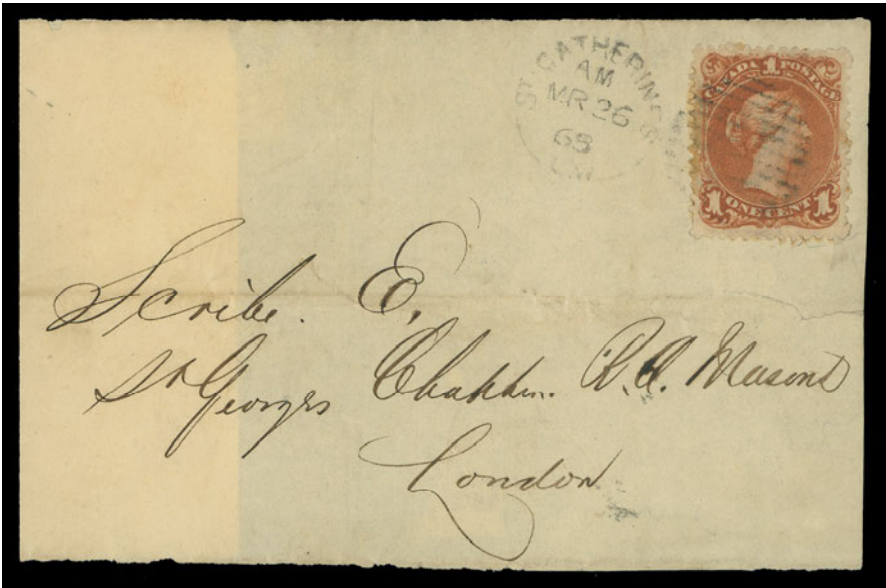 ST CATHERINES
AM
MR 26
68
CANADA POSTAGE
1
1 ONE CENT 1
Scribe. E,
St Georges Chapter. R. A. Masons
London